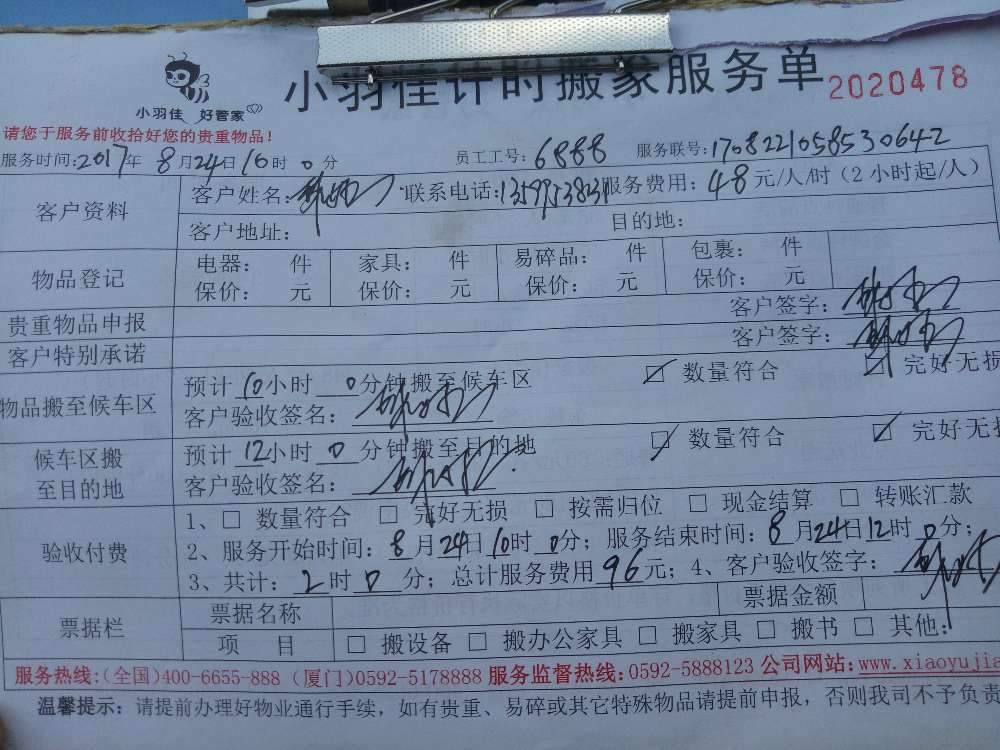 小羽佳计时搬家服务单
2020478
小羽佳 好管家
请您于服务前收拾好您的贵重物品!
服务时间:2017年 8月24日10时 0分 员工工号:6888 服务联号:170822105853064 2
客户资料 客户姓名: 联系电话: 服务费用:48元/人/时(2小时起/人)
客户地址: 目的地:
物品登记 电器: 件 家具: 件 易碎品: 件 包裹: 件
保价: 元 保价: 元 保价: 元 保价: 元
贵重物品申报 客户签字:
客户特别承诺 客户签字:
物品搬至候车区 预计10小时 0分钟搬至候车区 ☑ 数量符合 ☑ 完好无损
客户验收签名:
候车区搬至目的地 预计12小时 0分钟搬至目的地 ☑ 数量符合 ☑ 完好无损
客户验收签名:
验收付费 1、□ 数量符合 □ 完好无损 □ 按需归位 □ 现金结算 □ 转账汇款
2、服务开始时间:8月24日10时 0分;服务结束时间:8月24日12时 0分;
3、共计:2时0分;总计服务费用96元;4、客户验收签字:
票据栏 票据名称 票据金额
项 目 □ 搬设备 □ 搬办公家具 □ 搬家具 □ 搬书 □ 其他:
服务热线:(全国)400-6655-888 (厦门)0592-5178888 服务监督热线:0592-5888123 公司网站:www.xiaoyujia
温馨提示:请提前办理好物业通行手续,如有贵重、易碎或其它特殊物品请提前申报,否则我司不予负责